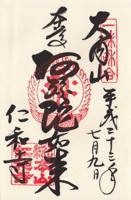 大内山
平成二十三年
七月九日
奉拝
阿弥陀如来
仁和寺